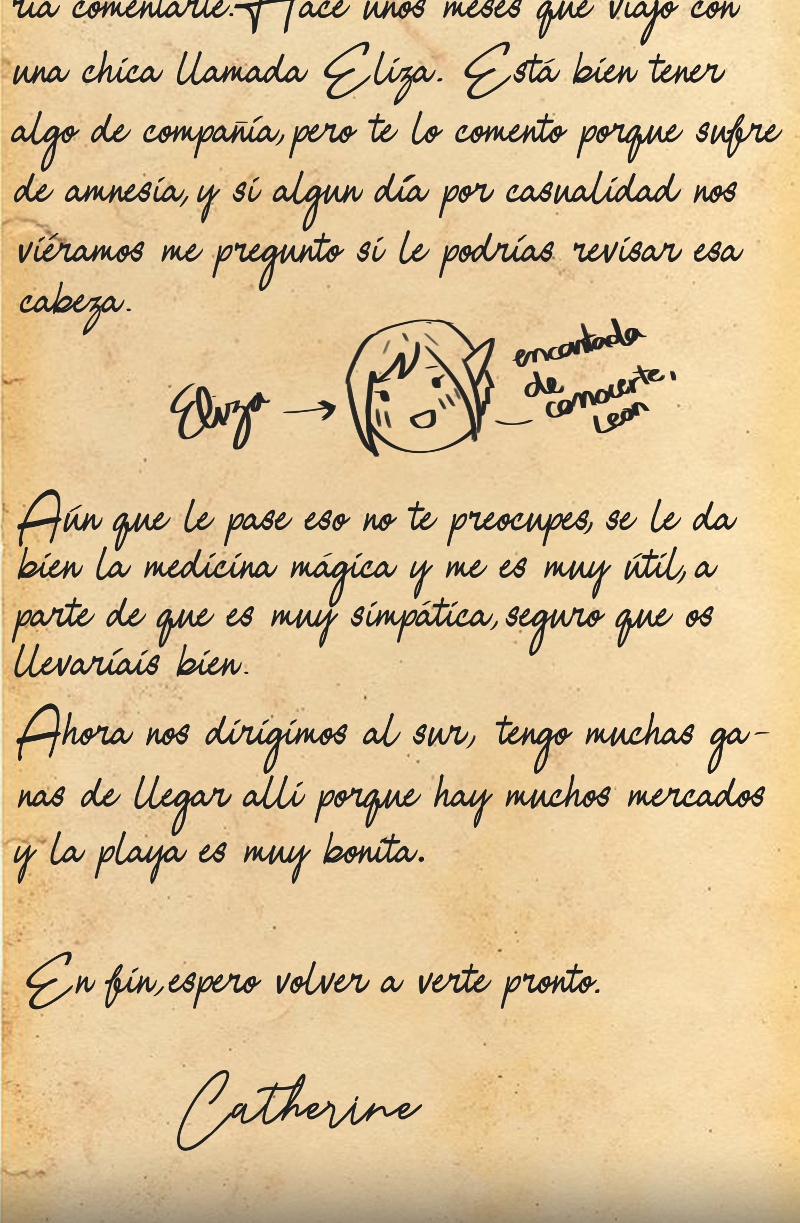 ría comentarle. Hace unos meses que viajo con
una chica llamada Eliza. Está bien tener
algo de compañía, pero te lo comento porque sufre
de amnesia, y si algun día por casualidad nos
viéramos me pregunto si le podrías revisar esa
cabeza.
Eliza
encantada
de
conocerte,
Leon
Aún que le pase eso no te preocupes, se le da
bien la medicina mágica y me es muy útil, a
parte de que es muy simpática, seguro que os
llevaríais bien.
Ahora nos dirigimos al sur, tengo muchas ga-
nas de llegar allí porque hay muchos mercados
y la playa es muy bonita.
En fin, espero volver a verte pronto.
Catherine